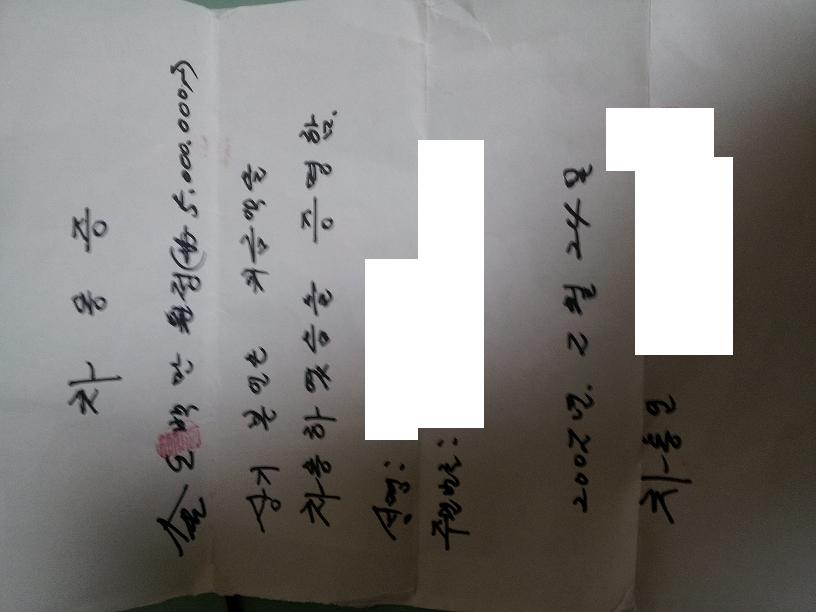 차 용 증
金 오백만 원정(₩ 5.000.000)
상기 본인은 차금액을
차용하였음을 증명함.
성명:
주민번호:
2002년. 2월 24일
차용인